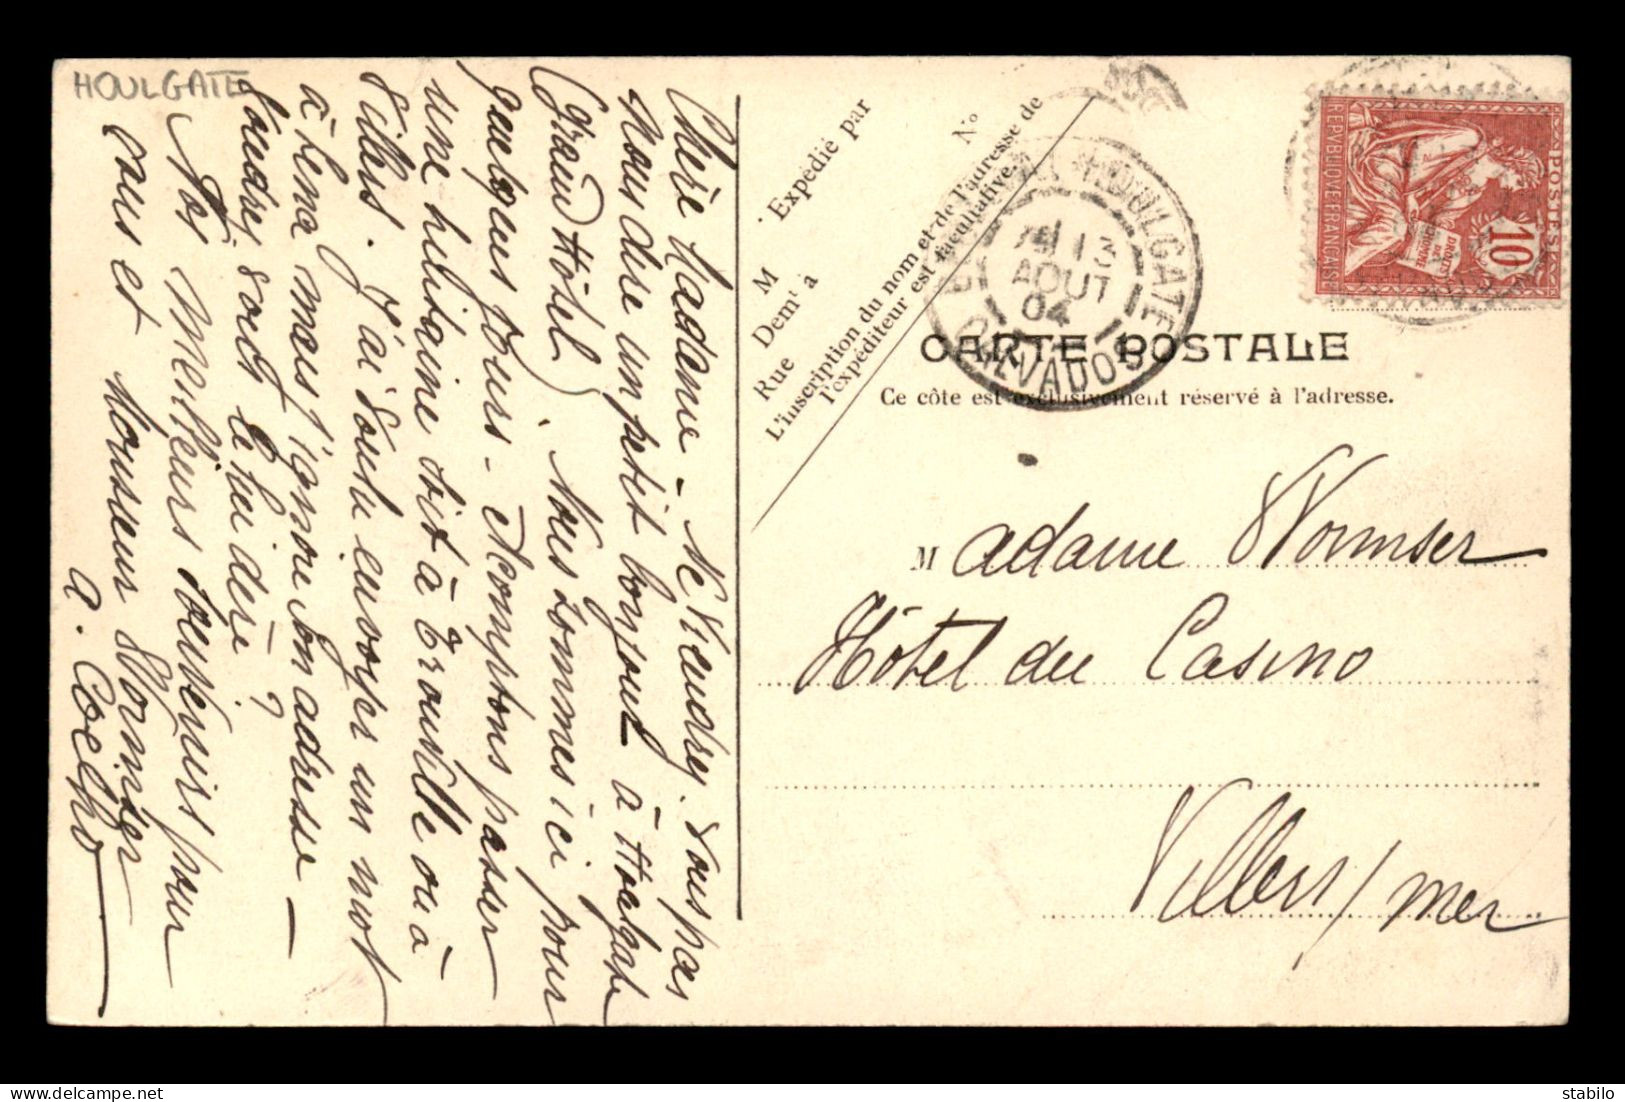 HOULGATE
Chère Madame - Ne Viendrez-vous pas
nous dire un petit bonjour à Houlgate
(Grand Hôtel). Nous sommes ici pour
quelques jours - Y comptons passer
une huitaine soit à Trouville ou à
Villers. J'ai voulu envoyer un mot
à Lena mais j'ignore son adresse -
Voudrez-vous le lui dire ?
Nos Meilleurs souvenirs pour
vous et Monsieur Wormser
A. Coelho
M
Expédié par
Demt à
Rue
No
L'inscription du nom et de l'adresse de
l'expéditeur est facultative.
HOULGATE
13
AOUT
04
CALVADOS
POSTES
10
REPVBLIQVE FRANÇAISE
DROITS DE L'HOMME
CARTE POSTALE
Ce côte est exclusivement réservé à l'adresse.
Madame Wormser
Hôtel du Casino
Villers/mer
stabilo